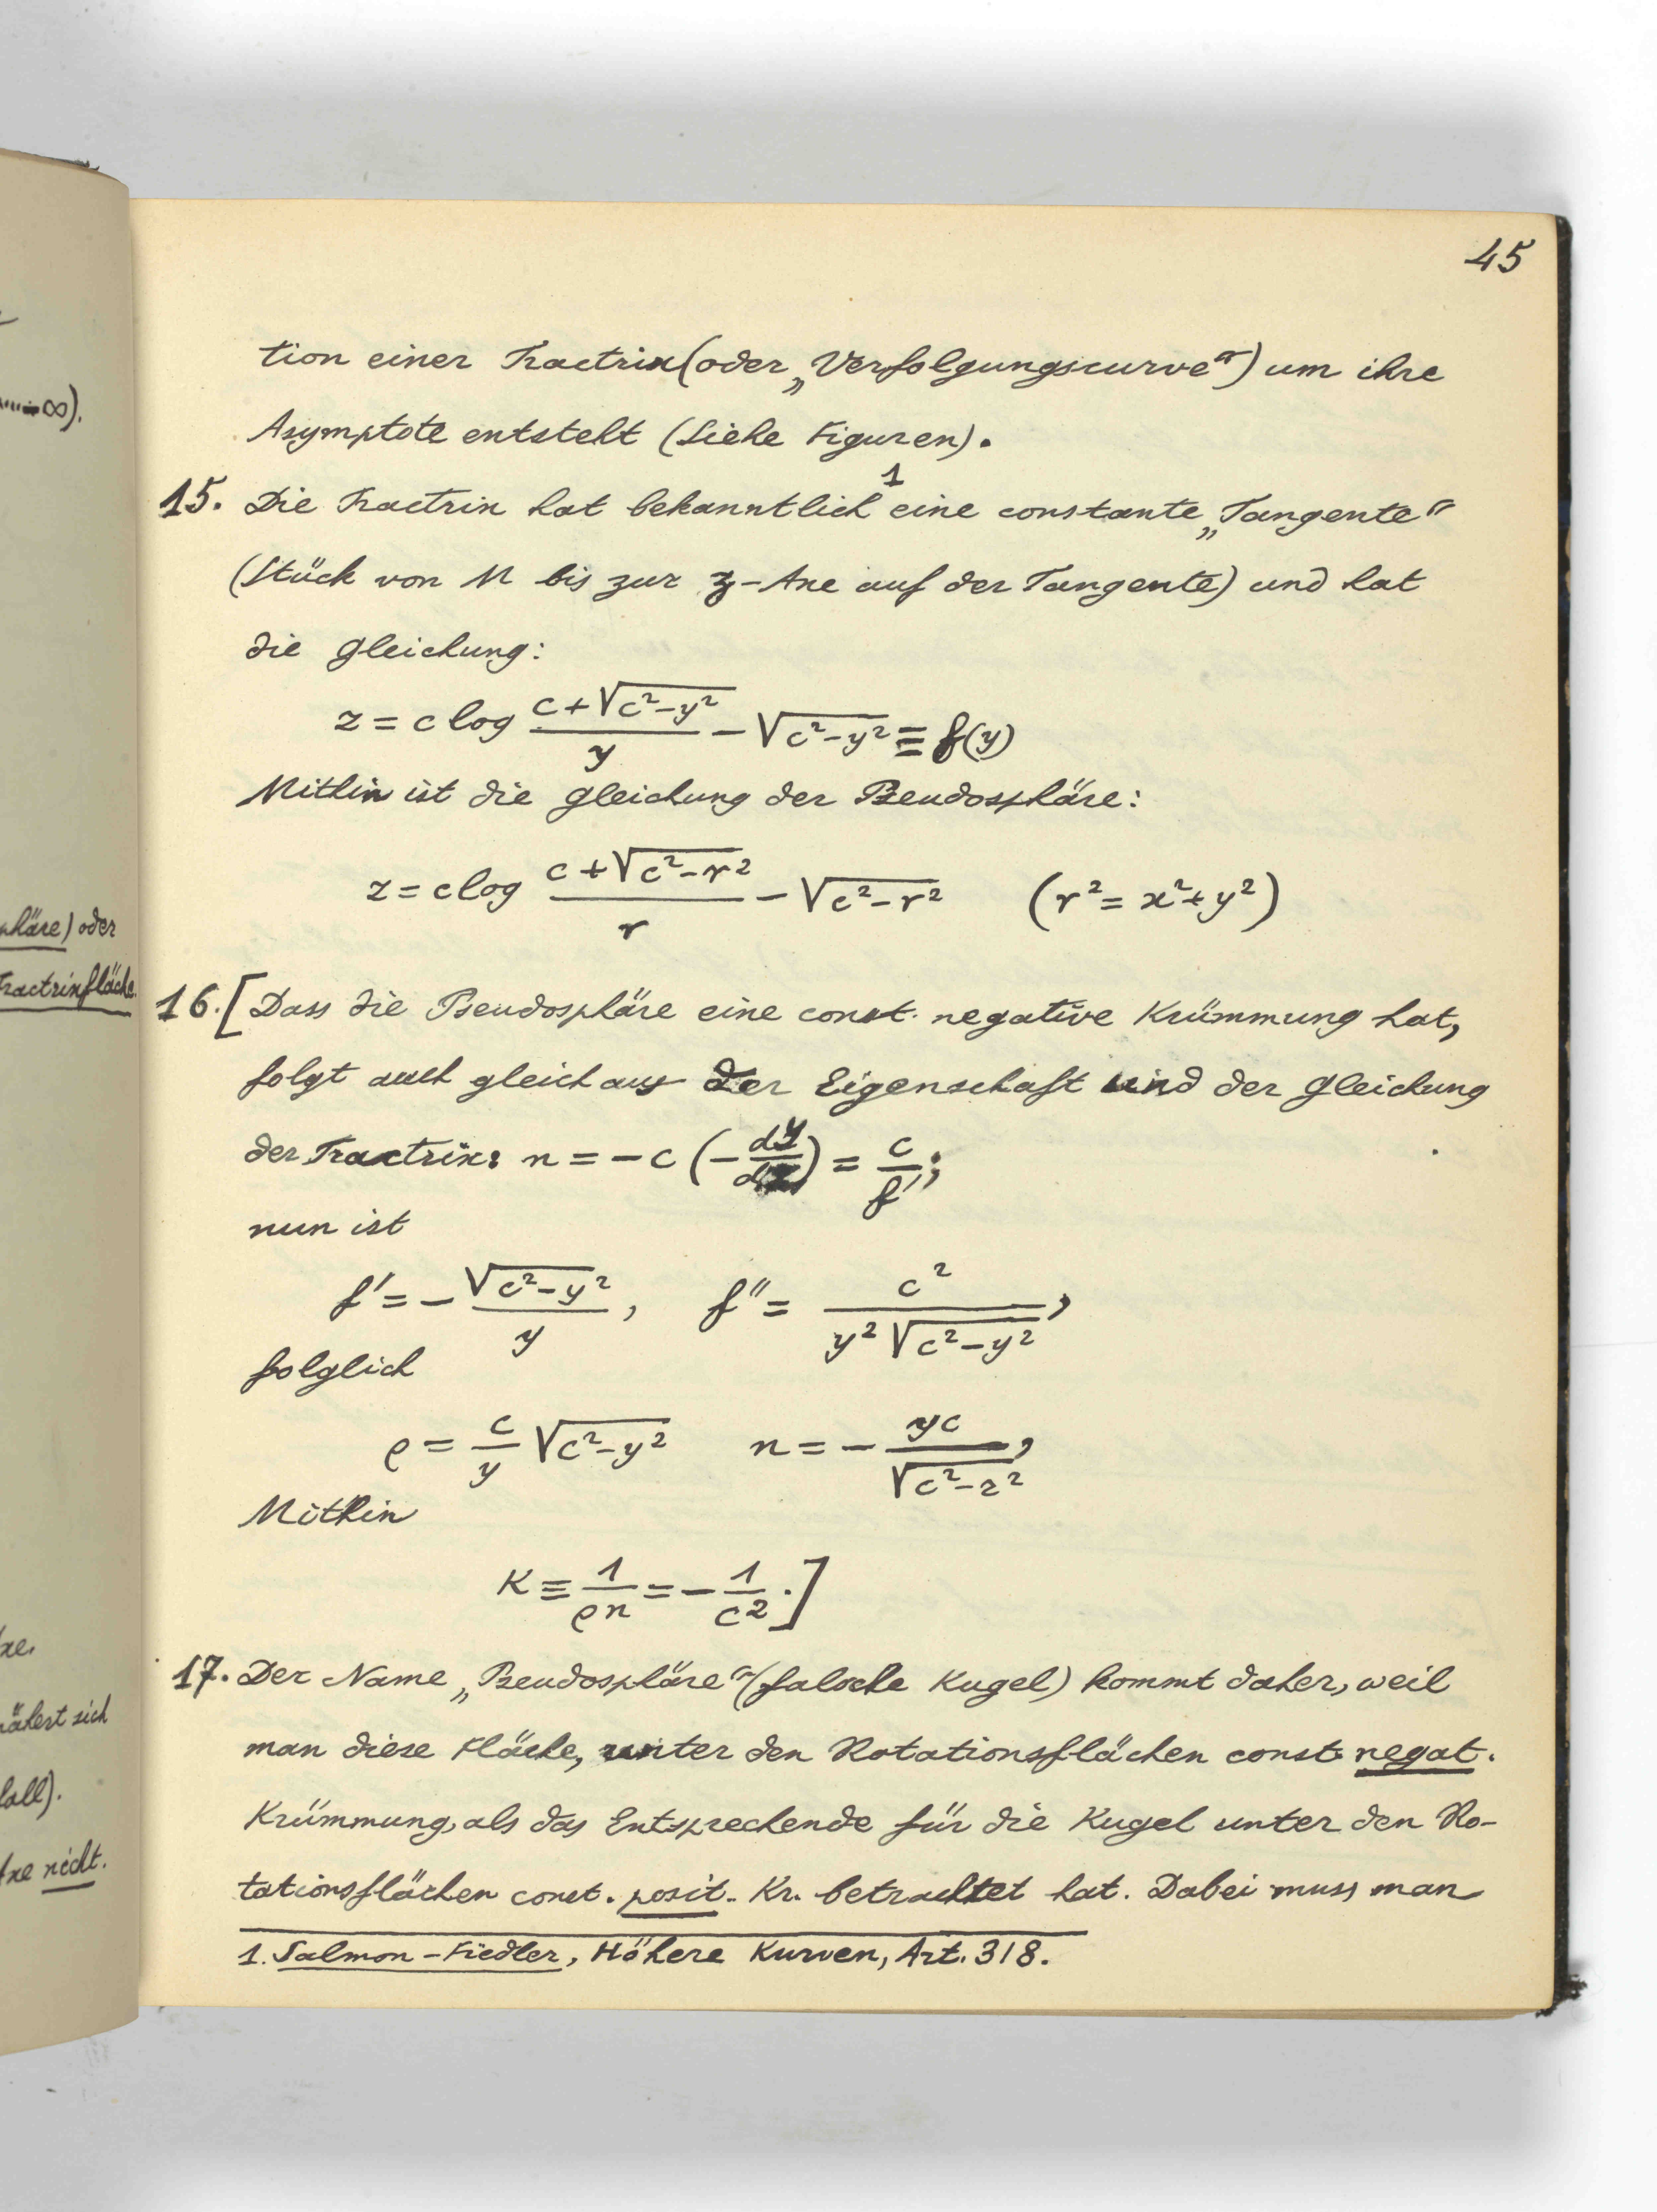 45
tion einer Tractrix (oder „Verfolgungscurve“) um ihre
Asymptote entsteht (Siehe Figuren).
15. Die Tractrix hat bekanntlich¹ eine constante „Tangente“
(Stück von M bis zur z-Axe auf der Tangente) und hat
die Gleichung:
z = c log (c+√(c²-y²))/y - √(c²-y²) ≡ f(y)
Mithin ist die Gleichung der Pseudosphäre:
z = c log (c+√(c²-r²))/r - √(c²-r²) (r² = x²+y²)
16. [Dass die Pseudosphäre eine const. negative Krümmung hat,
folgt auch gleich aus der Eigenschaft und der Gleichung
der Tractrix: n = -c (-dy/dz) = c/f';
nun ist
f' = -√(c²-y²)/y, f'' = c²/(y²√(c²-y²)),
folglich
ρ = c/y √(c²-y²) n = -yc/√(c²-z²),
Mithin
K ≡ 1/ρn = -1/c².]
17. Der Name „Pseudosphäre“ (falsche Kugel) kommt daher, weil
man diese Fläche, unter den Rotationsflächen const. negat.
Krümmung, als das Entsprechende für die Kugel unter den Ro-
tationsflächen const. posit. Kr. betrachtet hat. Dabei muss man
1. Salmon-Fiedler, Höhere Kurven, Art. 318.
∞).
phäre) oder
Tractrixfläche.
xe.
nähert sich
fall).
Axe nicht.